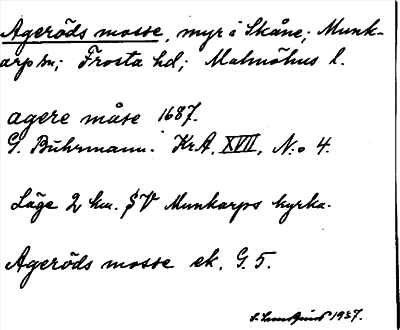 Ageröds mosse, myr i Skåne; Munk-
arp sn; Frosta hd; Malmöhus l.
agere måse 1687.
G. Buhrmann. KrA, XVII, N:o 4.
Läge 2 km. SV Munkarps kyrka.
Ageröds mosse ek. G. 5.
1937.